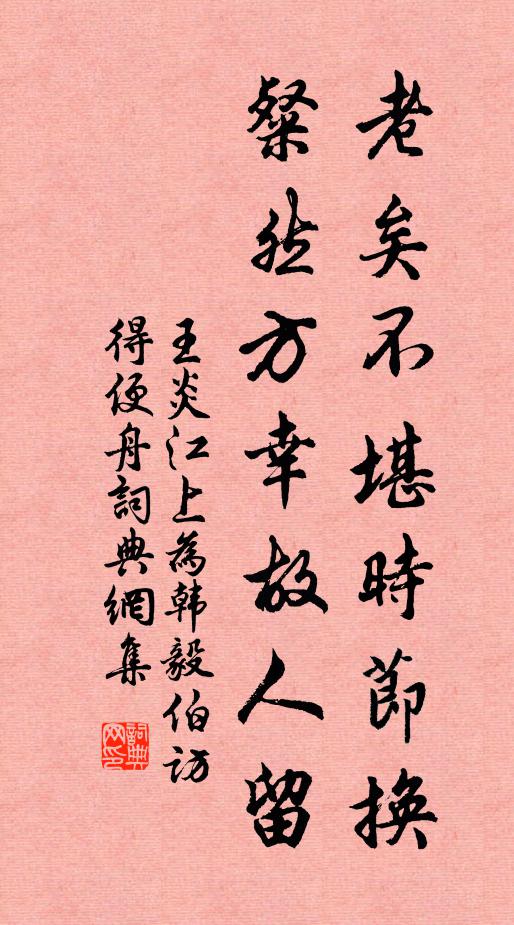 老矣不堪時節換
粲然方幸故人留
王炎江上為韩毅伯访
得便舟詞典網集
詞典网印